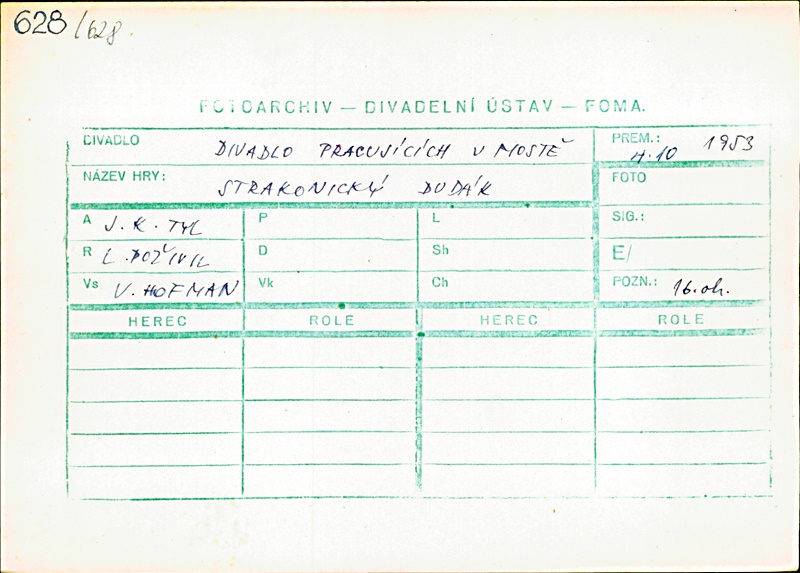 628/628
FOTOARCHIV — DIVADELNÍ ÚSTAV — FOMA.
DIVADLO DIVADLO PRACUJÍCÍCH V MOSTĚ PREM.: 4.10 1953
NÁZEV HRY: STRAKONICKÝ DUDÁK FOTO
A J. K. TYL P L SIG.:
R L. POŽIVIL D Sh E/
Vs V. HOFMAN Vk Ch POZN.: 16.oh.
HEREC ROLE HEREC ROLE